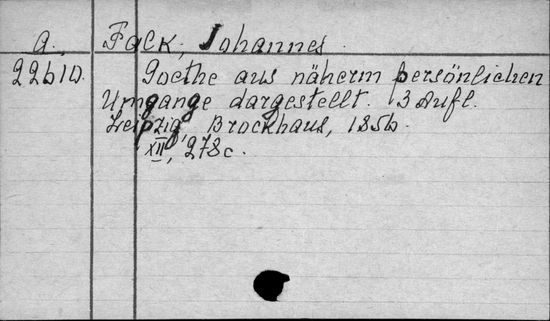 A. Falk, Johannes.
22610. Goethe aus näherm persönlichen
Umgange dargestellt. 3 Aufl.
Leipzig, Brockhaus, 1856.
XII, 278 c.